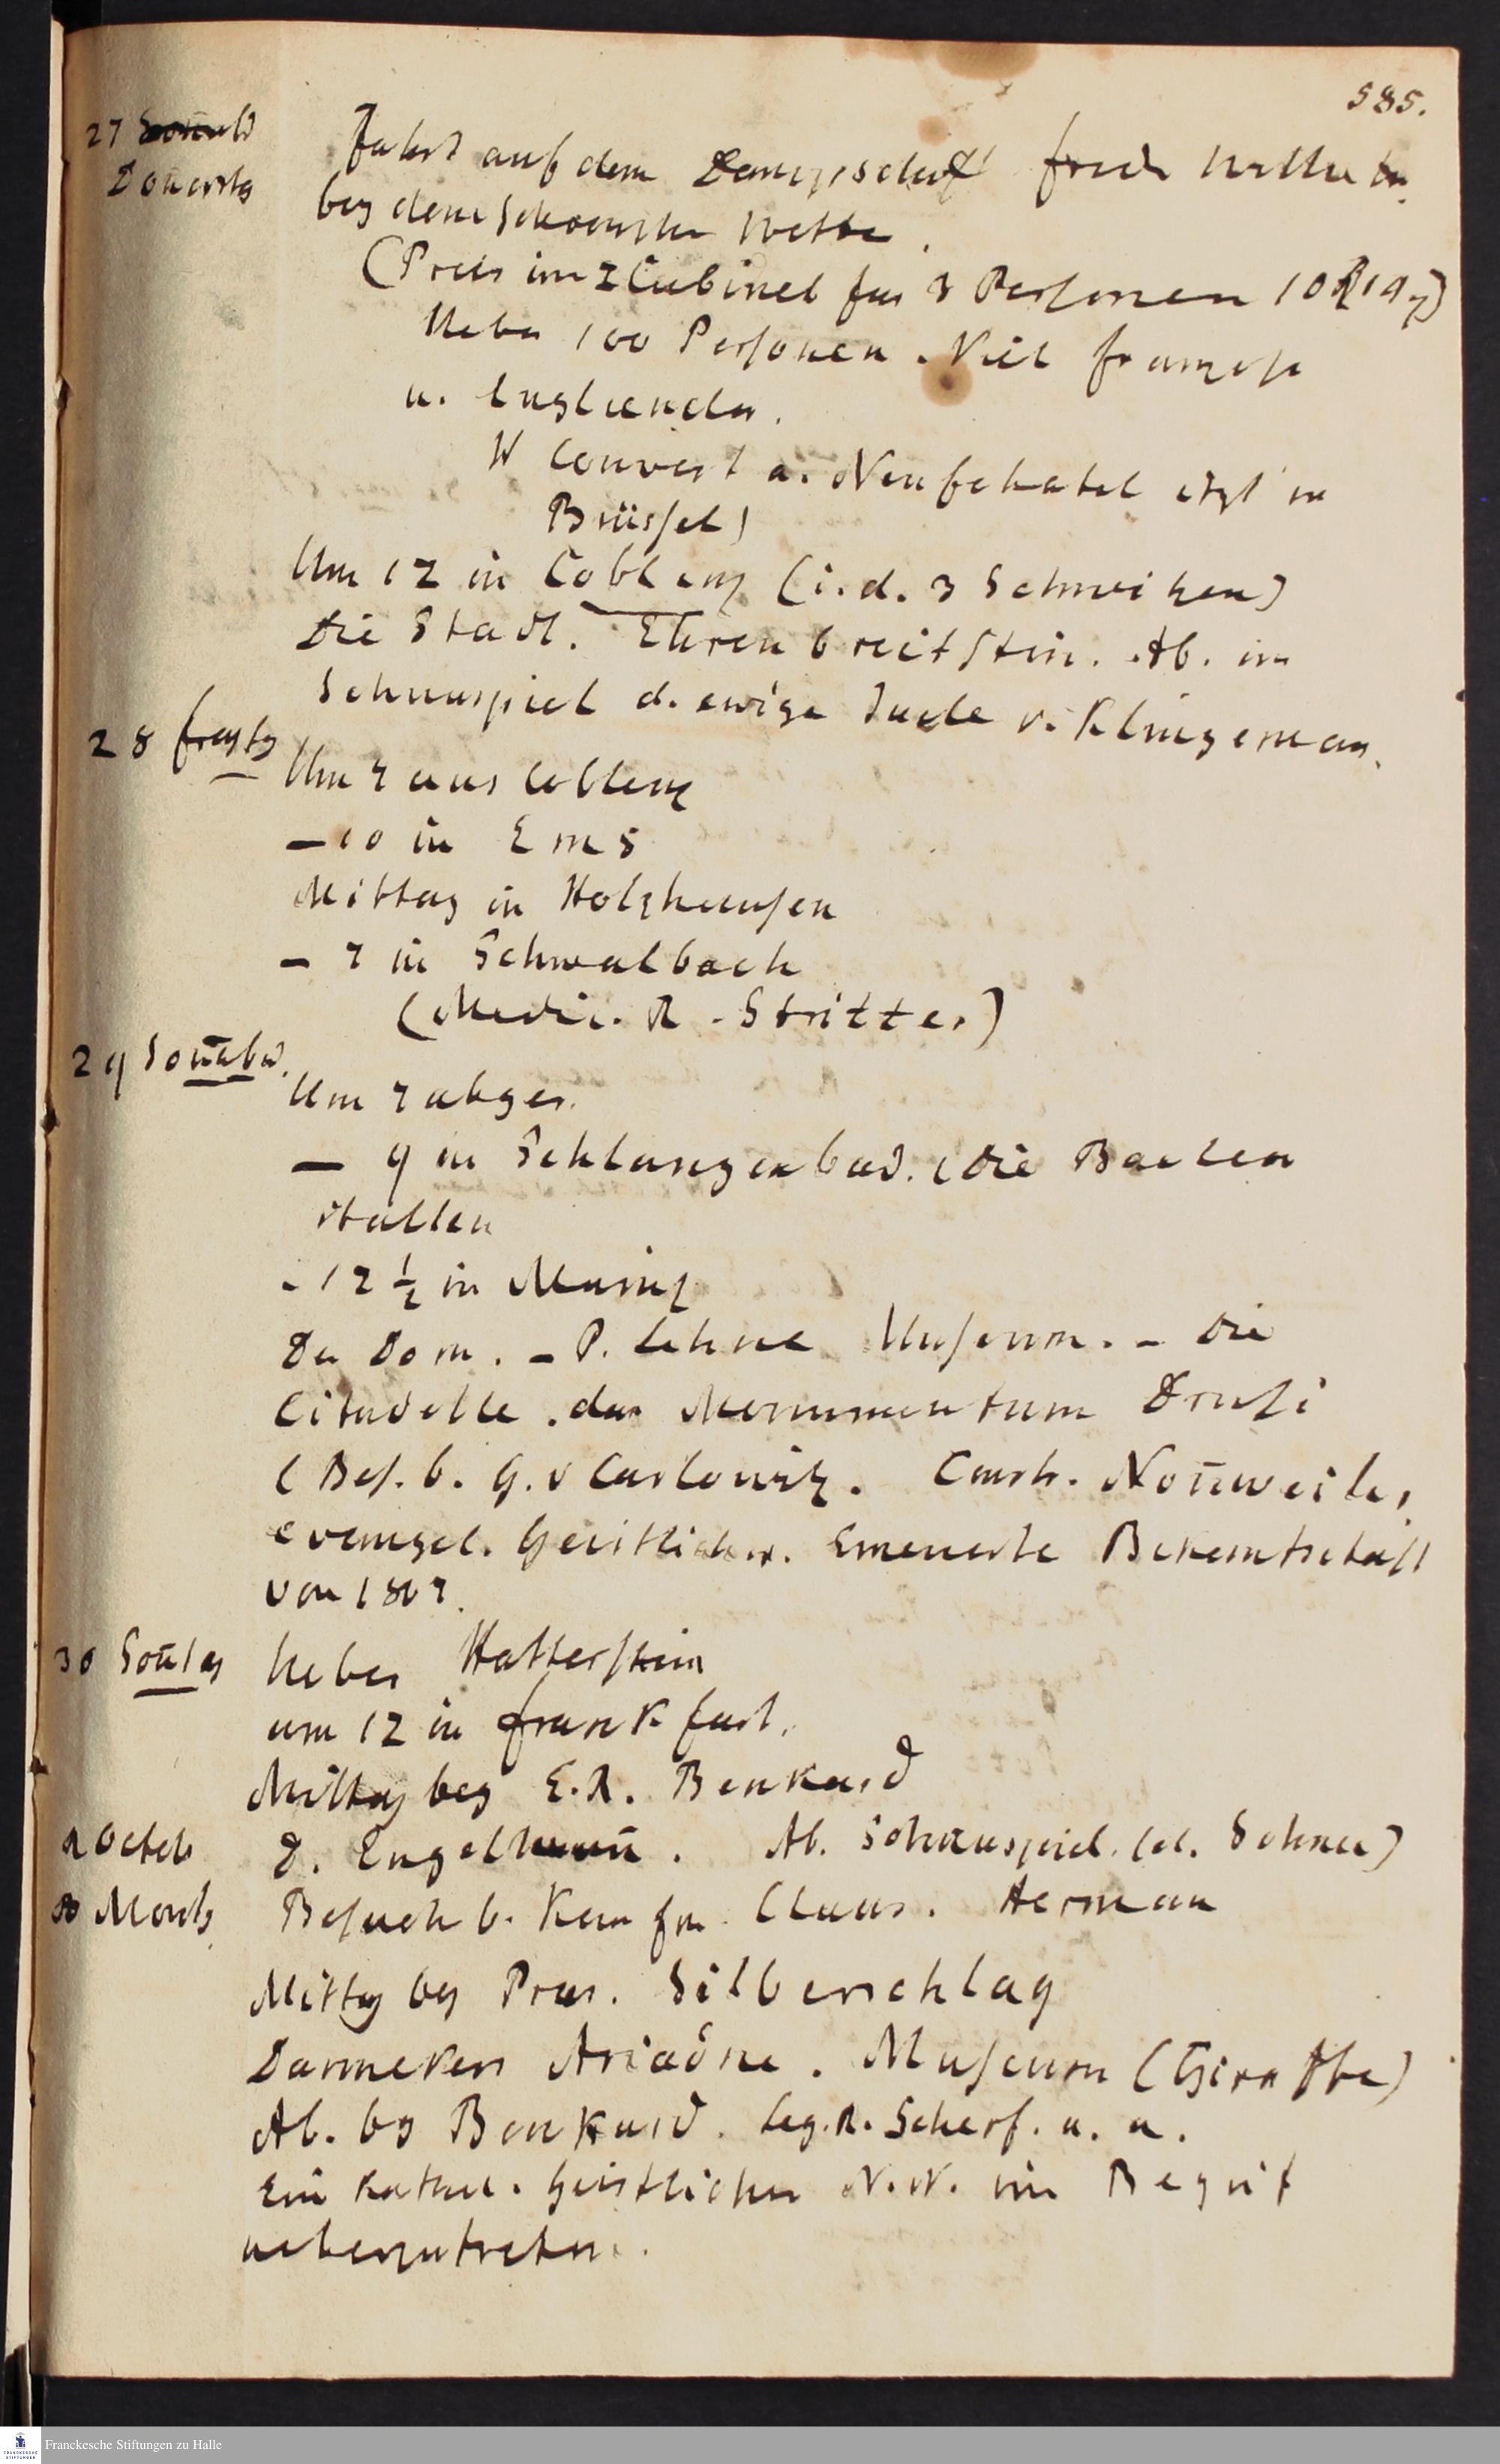 585.
27 Sonnabd
Donerstg
Fahrt auf dem Dampfschiff Fried. Wilhelm
bey dem schoensten Wetter.
(Preis im 2 Cabinet fur 3 Personen 10
Ueber 100 Personen. Viel franzose
u. Englaender.
W Convert a. Neufchatel itzt in
Brüssel)
Um 12 in Coblenz (i. d. 3 Schweitzen)
Die Stadt. Ehrenbreitstein. Ab. im
Schauspiel d. ewige Jude v. Klingeman.
28 Freytg
Um 7 aus Coblenz
— 10 in Ems
Mittag in Holzhausen
— 7 in Schwalbach
(Medic. R. Stritter)
29 Sonabd.
Um 7 abger.
— 9 in Schlangenbad. (Die Badean
stalten
- 12 ½ in Mainz
Der Dom. — P. Lehne Museum. — Die
Citadelle. das Monumentum Drusi
(Bes. b. G. v Carlowitz. Nonweiler
evangel. Geistlicher. Erneuerte Bekentschaft
von 1807.
30 Sontag
Ueber Hattersheim
um 12 in Frankfurt.
Mittag bey E. R. Benkard
1 Octob
Montg
D. Engelmann. Ab. Schauspiel.
Besuch b. Kaufm. Claus. Herman
Mittg by Praes. Silberschlag
Dannekers Ariadne. Museum (Giraffe)
Ab. by Benkard. Leg. R. Scherf. u. a.
Ein Kathol. Geistlicher N. N. im Begrif
ueberzutreten.
Franckesche Stiftungen zu Halle